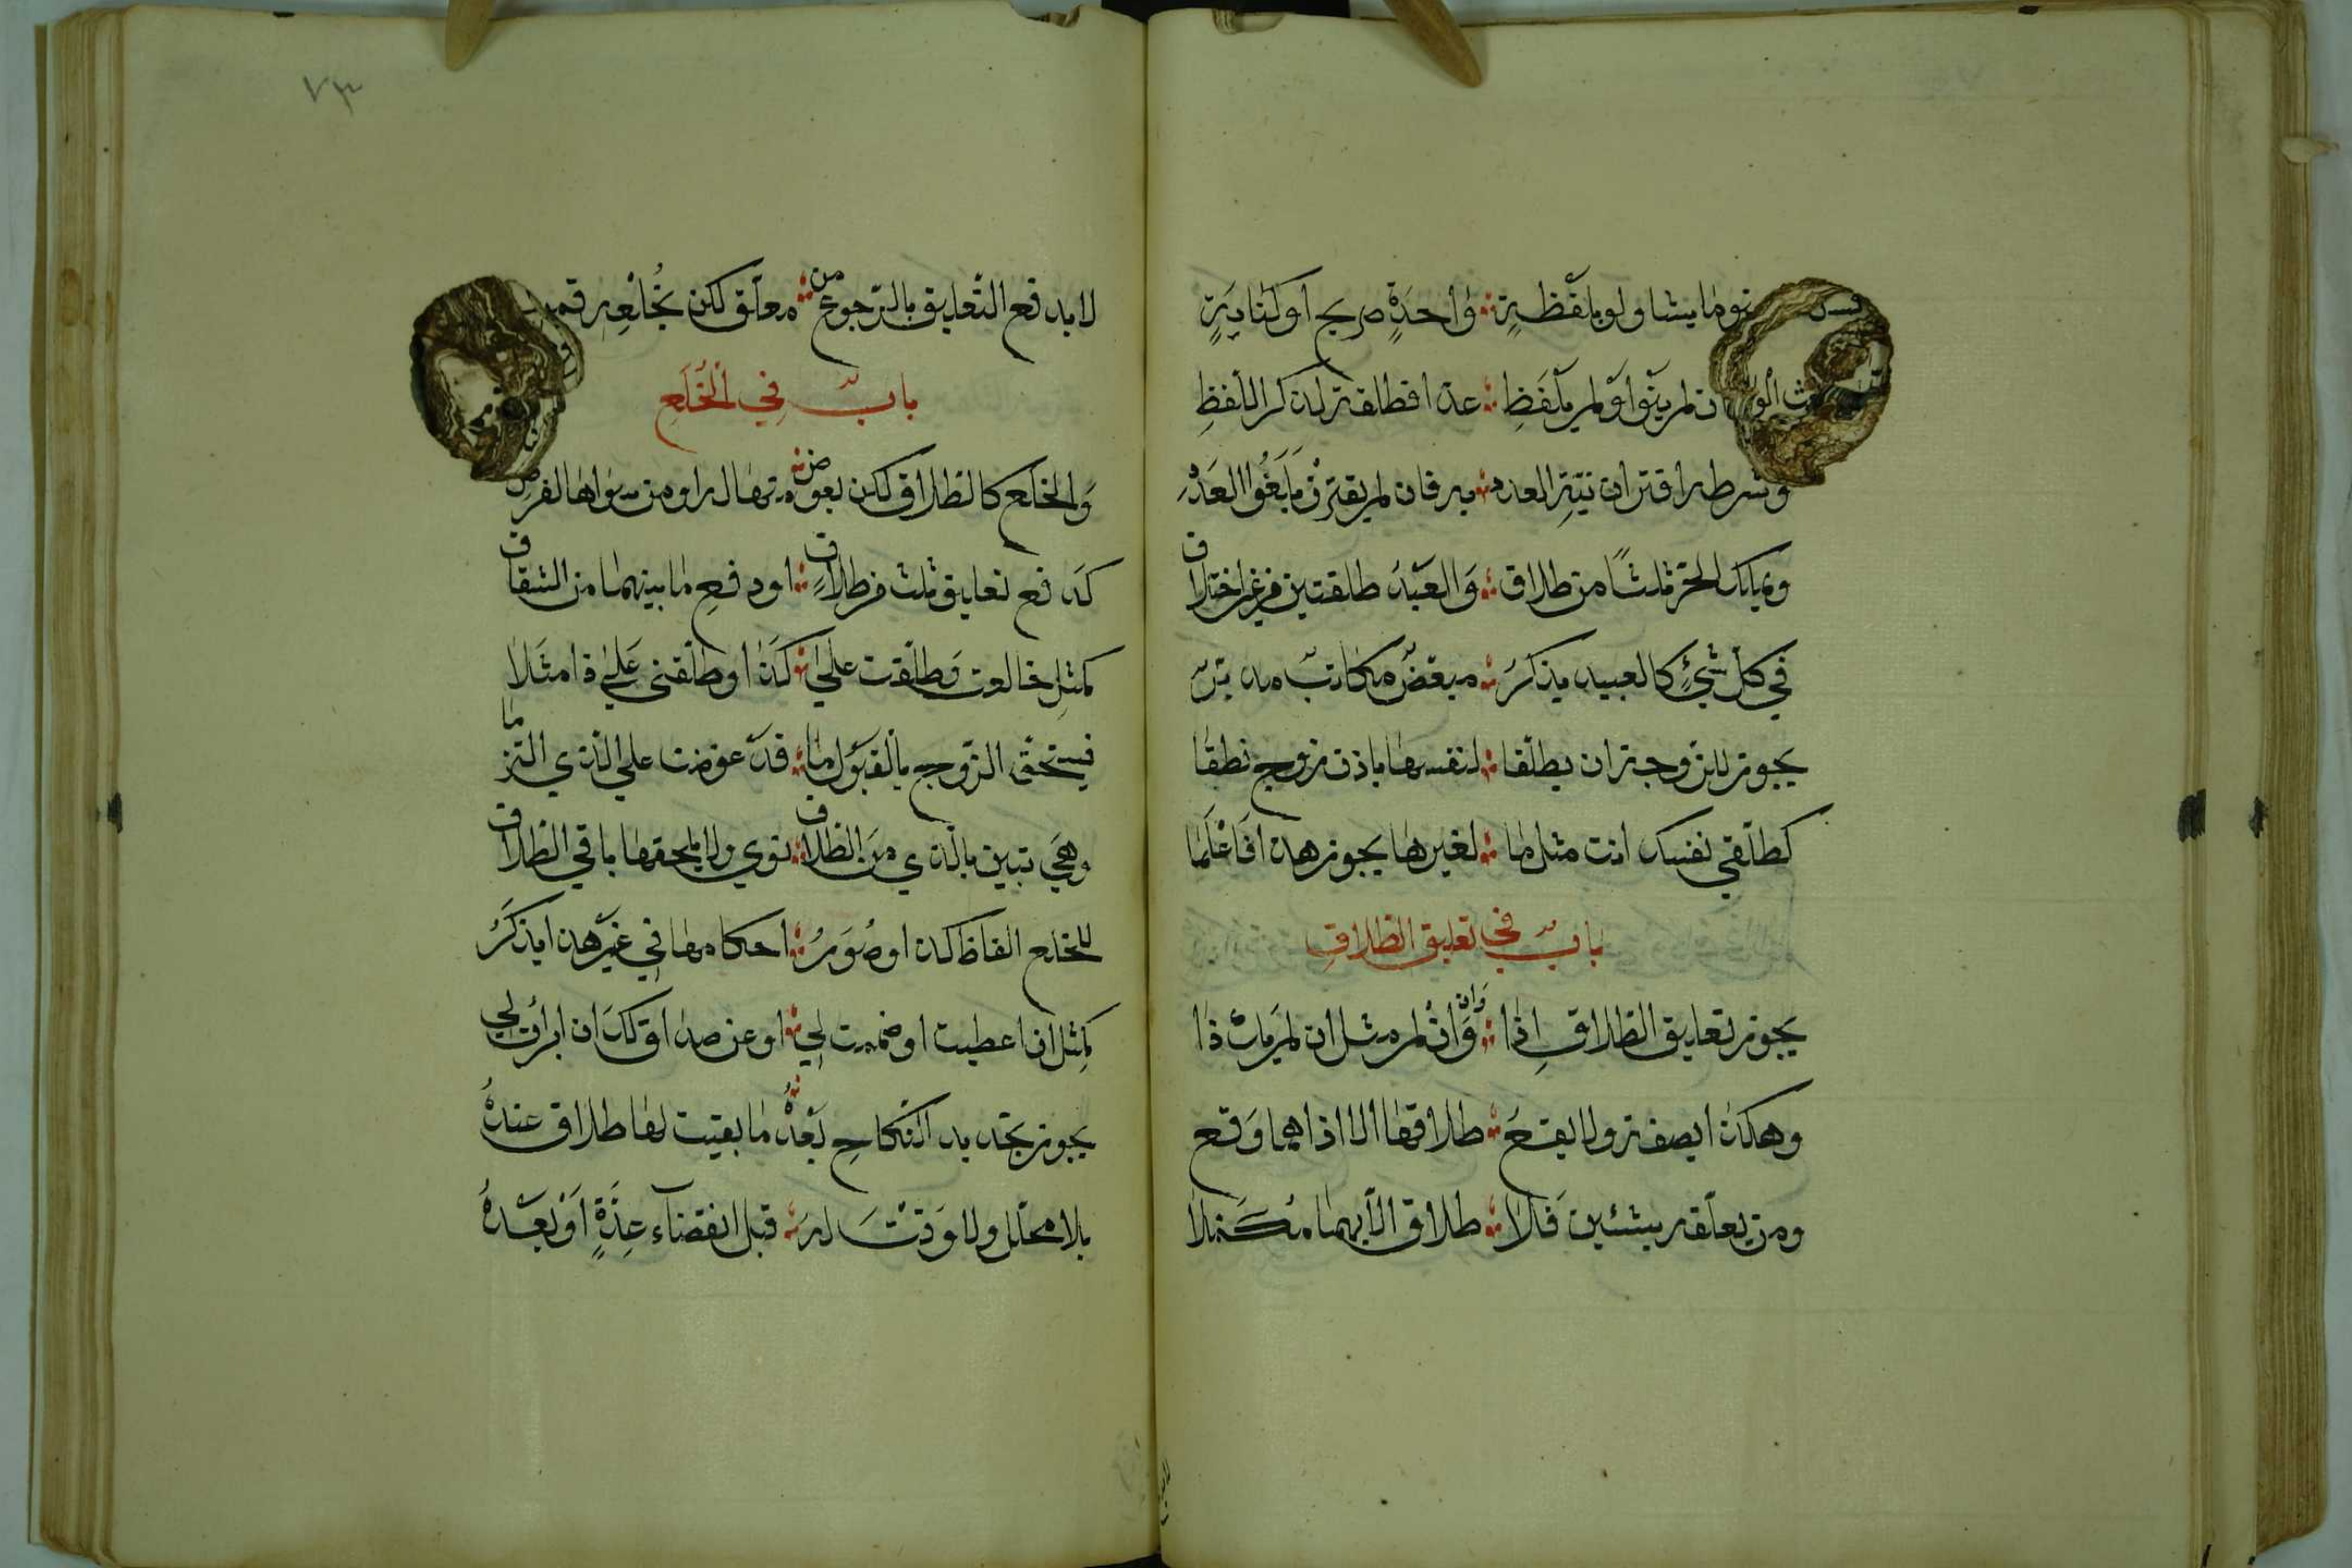 ينو ما يشا ولو بلفظة ؞ واحدة صريح او كناية
ان لم ينو او لم يلفظ ؞ عدا فطلقة لذكر اللفظ
وشرطه اقتران نية العدد ؞ به فان لم يقترن ما بغوا العدد
ويملك الحر ثلثا من طلاق ؞ والعبد طلقتين من غير اختلاف
في كل شيء كالعبيد يذكر ؞ مبعض مكاتب مدبر
يجوز للزوجة ان يطلقا ؞ لنفسها باذن زوج نطقا
كطلقي نفسك انت مثل ما ؞ لغيرها يجوز هذا فاعلما
باب في تعليق الطلاق
يجوز تعليق الطلاق اذا ؞ وان وان لم مثل ان لم يات ذا
وهكذا بصفة ولا يقع ؞ طلاقها الا اذا هما وقع
ومن يعلقه بشئين فلا ؞ طلاق الا بهما مكملا
٧٣
لا يدفع التعليق بالرجوع من ؞ معلق لكن بخلعه قمن
باب في الخلع
والخلع كالطلاق لكن بعوض ؞ تمهالراو من سواها لفرض
كدفع تعليق ثلث من طلاق ؞ او دفع ما بينهما من الشقاق
كمثل خالعت وطلقت على ؞ كذا او طلقني على ذا مثلا
فيستحق الزوج بالقبول ما ؞ قد عوضت على الذي التزما
وهي تبين بالذي من الطلاق ؞ نوي ولا يلحقها باقي الطلاق
للخلع الفاظ كذا وصور ؞ احكامها في غير هذا يذكر
كمثل ان اعطيت او ضمنت لي ؞ او عن صداقك ان ابرأت لي
يجوز تجديد النكاح بعد ؞ ما بقيت لها طلاق عنده
بلا محلل ولا وقت له ؞ قبل انقضاء عدة او بعده